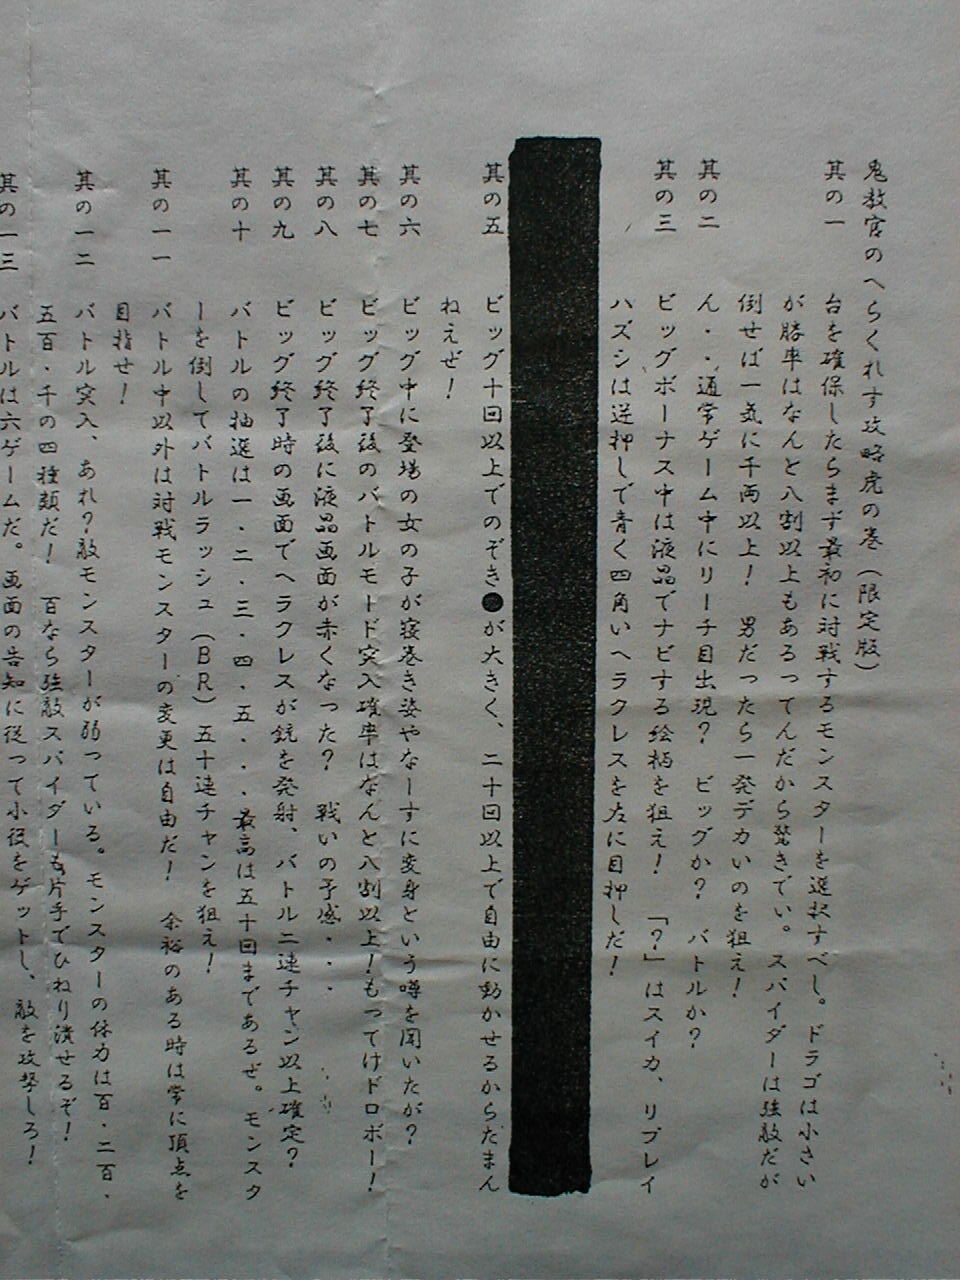 鬼教官のへらくれす攻略虎の巻（限定版）
其の一　台を確保したらまず最初に対戦するモンスターを選択すべし。ドラゴは小さい
が勝率はなんと八割以上もあるってんだから驚きでい。スパイダーは強敵だが
倒せば一気に千両以上！　男だったら一発デカいのを狙え！
其の二　ん・・通常ゲーム中にリーチ目出現？　ビッグか？　バトルか？
其の三　ビッグボーナス中は液晶でナビする絵柄を狙え！　「？」はスイカ、リプレイ
ハズシは逆押しで青く四角いヘラクレスを左に目押しだ！
其の五　ビッグ十回以上でのぞき●が大きく、二十回以上で自由に動かせるからたまん
ねえぜ！
其の六　ビッグ中に登場の女の子が寝巻き姿やなーすに変身という噂を聞いたが？
其の七　ビッグ終了後のバトルモード突入確率はなんと八割以上！もってけドロボー！
其の八　ビッグ終了後に液晶画面が赤くなった？　戦いの予感・・・
其の九　ビッグ終了時の画面でヘラクレスが銃を発射、バトル二連チャン以上確定？
其の十　バトルの抽選は一．二．三．四．五．．．最高は五十回まであるぜ。モンスタ
ーを倒してバトルラッシュ（ＢＲ）五十連チャンを狙え！
其の一一　バトル中以外は対戦モンスターの変更は自由だ！　余裕のある時は常に頂点を
目指せ！
其の一二　バトル突入、あれ？敵モンスターが弱っている。モンスターの体力は百・二百、
五百・千の四種類だ！　百なら強敵スパイダーも片手でひねり潰せるぞ！
其の一三　バトルは六ゲームだ。画面の告知に従って小役をゲットし、敵を攻撃しろ！